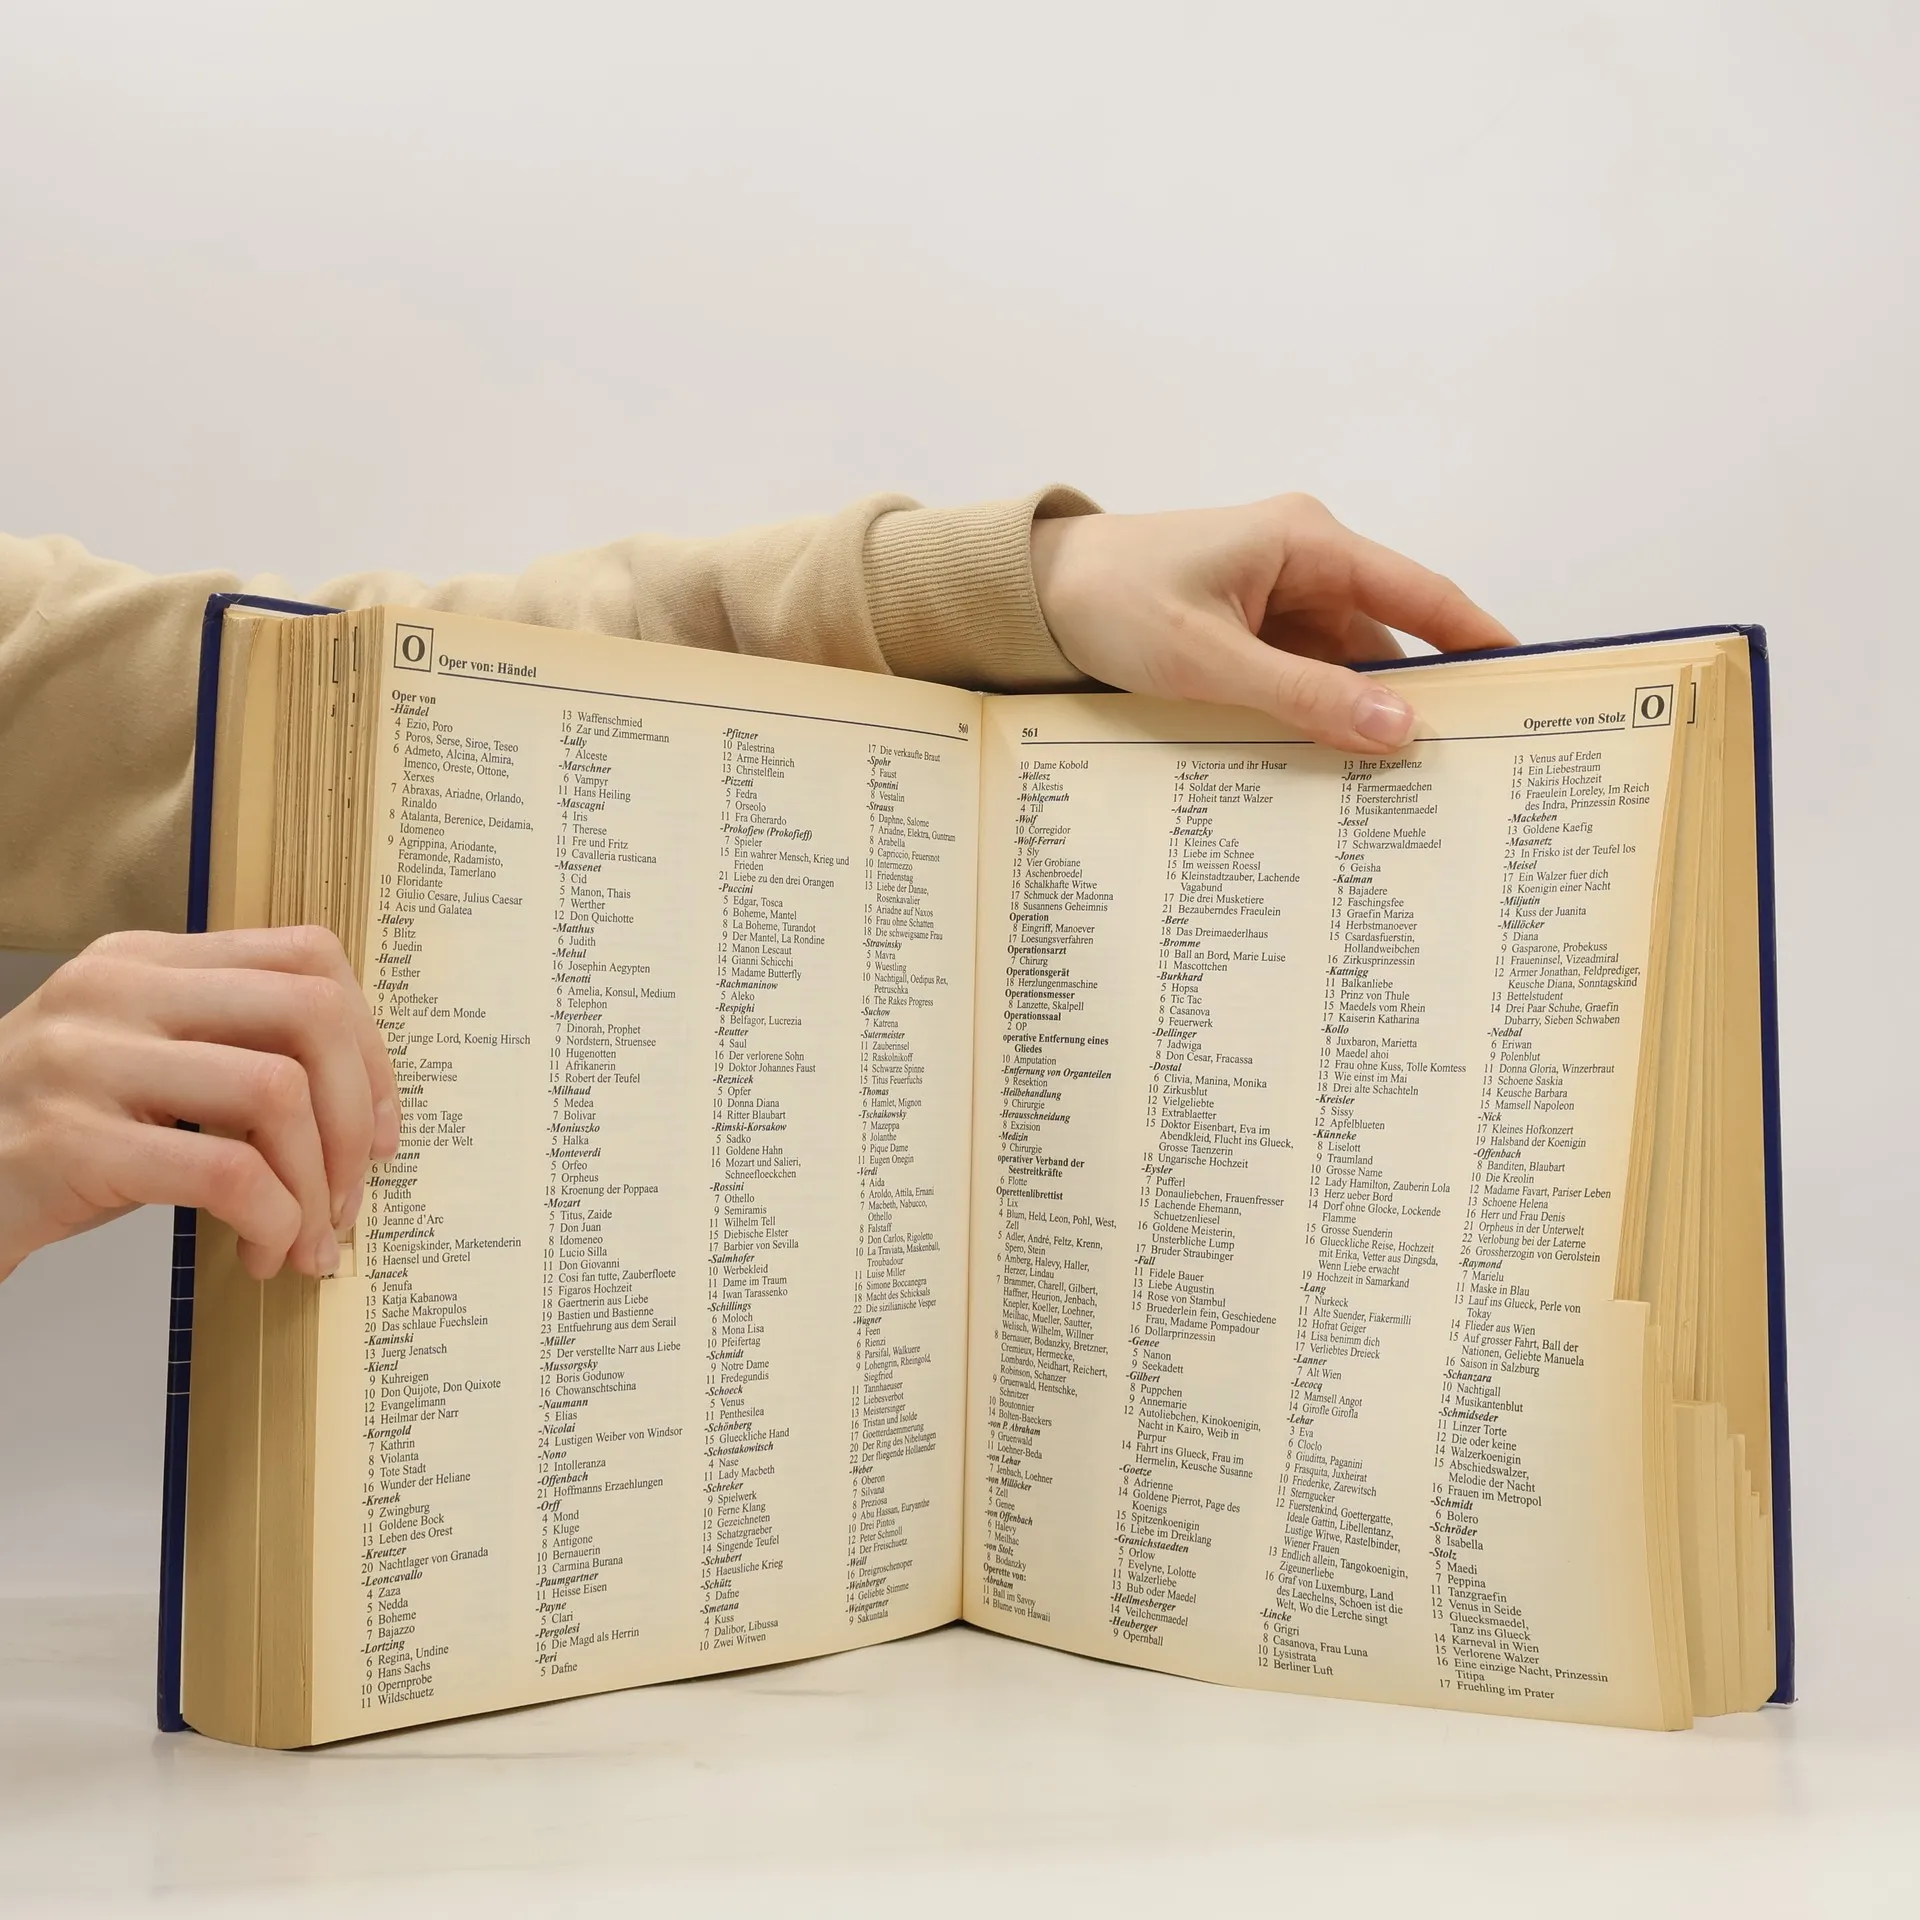 O
Oper von: Händel
560
Oper von
-Händel
4 Ezio, Poro
5 Poros, Serse, Siroe, Teseo
6 Admeto, Alcina, Almira,
Imenco, Oreste, Ottone,
Xerxes
7 Abraxas, Ariadne, Orlando,
Rinaldo
8 Atalanta, Berenice, Deidamia,
Idomeneo
9 Agrippina, Ariodante,
Feramonde, Radamisto,
Rodelinda, Tamerlano
10 Floridante
12 Giulio Cesare, Julius Caesar
14 Acis und Galatea
-Halevy
5 Blitz
6 Juedin
-Hanell
6 Esther
-Haydn
9 Apotheker
15 Welt auf dem Monde
Henze
Der junge Lord, Koenig Hirsch
rold
Marie, Zampa
chreiberwiese
emith
rdillac
nes vom Tage
this der Maler
rmonie der Welt
mann
6 Undine
-Honegger
6 Judith
8 Antigone
10 Jeanne d'Arc
-Humperdinck
13 Koenigskinder, Marketenderin
16 Haensel und Gretel
-Janacek
6 Jenufa
13 Katja Kabanowa
15 Sache Makropulos
20 Das schlaue Fuechslein
-Kaminski
13 Juerg Jenatsch
-Kienzl
9 Kuhreigen
10 Don Quijote, Don Quixote
12 Evangelimann
14 Heilmar der Narr
-Korngold
7 Kathrin
8 Violanta
9 Tote Stadt
16 Wunder der Heliane
-Krenek
9 Zwingburg
11 Goldene Bock
13 Leben des Orest
-Kreutzer
20 Nachtlager von Granada
-Leoncavallo
4 Zaza
5 Nedda
6 Boheme
7 Bajazzo
-Lortzing
6 Regina, Undine
9 Hans Sachs
10 Opernprobe
11 Wildschuetz
13 Waffenschmied
16 Zar und Zimmermann
-Lully
7 Alceste
-Marschner
6 Vampyr
11 Hans Heiling
-Mascagni
4 Iris
7 Therese
11 Fre und Fritz
19 Cavalleria rusticana
-Massenet
3 Cid
5 Manon, Thais
7 Werther
12 Don Quichotte
-Matthus
6 Judith
-Mehul
16 Josephin Aegypten
-Menotti
6 Amelia, Konsul, Medium
8 Telephon
-Meyerbeer
7 Dinorah, Prophet
9 Nordstern, Struensee
10 Hugenotten
11 Afrikanerin
15 Robert der Teufel
-Milhaud
5 Medea
7 Bolivar
-Moniuszko
5 Halka
-Monteverdi
5 Orfeo
7 Orpheus
18 Kroenung der Poppaea
-Mozart
5 Titus, Zaide
7 Don Juan
8 Idomeneo
10 Lucio Silla
11 Don Giovanni
12 Cosi fan tutte, Zauberfloete
15 Figaros Hochzeit
18 Gaertnerin aus Liebe
19 Bastien und Bastienne
23 Entfuehrung aus dem Serail
-Müller
25 Der verstellte Narr aus Liebe
-Mussorgsky
12 Boris Godunow
16 Chowanschtschina
-Naumann
5 Elias
-Nicolai
24 Lustigen Weiber von Windsor
-Nono
12 Intolleranza
-Offenbach
21 Hoffmanns Erzaehlungen
-Orff
4 Mond
5 Kluge
8 Antigone
10 Bernauerin
13 Carmina Burana
-Paumgartner
11 Heisse Eisen
-Payne
5 Clari
-Pergolesi
16 Die Magd als Herrin
-Peri
5 Dafne
-Pfitzner
10 Palestrina
12 Arme Heinrich
13 Christelflein
-Pizzetti
5 Fedra
7 Orseolo
11 Fra Gherardo
-Prokofjew (Prokofieff)
7 Spieler
15 Ein wahrer Mensch, Krieg und
Frieden
21 Liebe zu den drei Orangen
-Puccini
5 Edgar, Tosca
6 Boheme, Mantel
8 La Boheme, Turandot
9 Der Mantel, La Rondine
12 Manon Lescaut
14 Gianni Schicchi
15 Madame Butterfly
-Rachmaninow
5 Aleko
-Respighi
8 Belfagor, Lucrezia
-Reutter
4 Saul
16 Der verlorene Sohn
19 Doktor Johannes Faust
-Reznicek
5 Opfer
10 Donna Diana
14 Ritter Blaubart
-Rimski-Korsakow
5 Sadko
11 Goldene Hahn
16 Mozart und Salieri,
Schneefloeckchen
-Rossini
7 Othello
9 Semiramis
11 Wilhelm Tell
15 Diebische Elster
17 Barbier von Sevilla
-Salmhofer
10 Werbekleid
11 Dame im Traum
14 Iwan Tarassenko
-Schillings
6 Moloch
8 Mona Lisa
10 Pfeifertag
-Schmidt
9 Notre Dame
11 Fredegundis
-Schoeck
5 Venus
11 Penthesilea
-Schönberg
15 Glueckliche Hand
-Schostakowitsch
4 Nase
11 Lady Macbeth
-Schreker
9 Spielwerk
10 Ferne Klang
12 Gezeichneten
13 Schatzgraeber
14 Singende Teufel
-Schubert
15 Haeusliche Krieg
-Schütz
5 Dafne
-Smetana
4 Kuss
7 Dalibor, Libussa
10 Zwei Witwen
17 Die verkaufte Braut
-Spohr
5 Faust
-Spontini
8 Vestalin
-Strauss
6 Daphne, Salome
7 Ariadne, Elektra, Guntram
8 Arabella
9 Capriccio, Feuersnot
10 Intermezzo
11 Friedenstag
13 Liebe der Danae,
Rosenkavalier
15 Ariadne auf Naxos
16 Frau ohne Schatten
18 Die schweigsame Frau
-Strawinsky
5 Mavra
9 Wuestling
10 Nachtigall, Oedipus Rex,
Petruschka
16 The Rakes Progress
-Suchow
7 Katrena
-Sutermeister
11 Zauberinsel
12 Raskolnikoff
14 Schwarze Spinne
15 Titus Feuerfuchs
-Thomas
6 Hamlet, Mignon
-Tschaikowsky
7 Mazeppa
8 Jolanthe
9 Pique Dame
11 Eugen Onegin
-Verdi
4 Aida
6 Aroldo, Attila, Ernani
7 Macbeth, Nabucco,
Othello
8 Falstaff
9 Don Carlos, Rigoletto
10 La Traviata, Maskenball,
Troubadour
11 Luise Miller
16 Simone Boccanegra
18 Macht des Schicksals
22 Die sizilianische Vesper
-Wagner
4 Feen
6 Rienzi
8 Parsifal, Walkuere
9 Lohengrin, Rheingold,
Siegfried
11 Tannhaeuser
12 Liebesverbot
13 Meistersinger
16 Tristan und Isolde
17 Goetterdaemmerung
20 Der Ring des Nibelungen
22 Der fliegende Hollaender
-Weber
6 Oberon
7 Silvana
8 Preziosa
9 Abu Hassan, Euryanthe
10 Drei Pintos
12 Peter Schmoll
14 Der Freischuetz
-Weill
16 Dreigroschenoper
-Weinberger
14 Geliebte Stimme
-Weingartner
9 Sakuntala
561
Operette von Stolz
O
10 Dame Kobold
-Wellesz
8 Alkestis
-Wohlgemuth
4 Till
-Wolf
10 Corregidor
-Wolf-Ferrari
3 Sly
12 Vier Grobiane
13 Aschenbroedel
16 Schalkhafte Witwe
17 Schmuck der Madonna
18 Susannens Geheimnis
Operation
8 Eingriff, Manoever
17 Loesungsverfahren
Operationsarzt
7 Chirurg
Operationsgerät
18 Herzlungenmaschine
Operationsmesser
8 Lanzette, Skalpell
Operationssaal
2 OP
operative Entfernung eines
Gliedes
10 Amputation
-Entfernung von Organteilen
9 Resektion
-Heilbehandlung
9 Chirurgie
-Herausschneidung
8 Exzision
-Medizin
9 Chirurgie
operativer Verband der
Seestreitkräfte
6 Flotte
Operettenlibrettist
3 Lix
4 Blum, Held, Leon, Pohl, West,
Zell
5 Adler, Andrè, Feltz, Krenn,
Spero, Stein
6 Amberg, Halevy, Haller,
Herzer, Lindau
7 Brammer, Charell, Gilbert,
Haffner, Heurion, Jenbach,
Knepler, Koeller, Loehner,
Meilhac, Mueller, Sautter,
Welisch, Wilhelm, Willner
8 Bernauer, Bodanzky, Bretzner,
Cremieux, Hermecke,
Lombardo, Neidhart, Reichert,
Robinson, Schanzer
9 Gruenwald, Hentschke,
Schnitzer
10 Boutonnier
14 Bolten-Baeckers
-von P. Abraham
9 Gruenwald
11 Loehner-Beda
-von Lehar
7 Jenbach, Loehner
-von Millöcker
4 Zell
5 Genee
-von Offenbach
6 Halevy
7 Meilhac
-von Stolz
8 Bodanzky
Operette von:
-Abraham
11 Ball im Savoy
14 Blume von Hawaii
19 Victoria und ihr Husar
-Ascher
14 Soldat der Marie
17 Hoheit tanzt Walzer
-Audran
5 Puppe
-Benatzky
11 Kleines Cafe
13 Liebe im Schnee
15 Im weissen Roessl
16 Kleinstadtzauber, Lachende
Vagabund
17 Die drei Musketiere
21 Bezauberndes Fraeulein
-Berte
18 Das Dreimaederlhaus
-Bromme
10 Ball an Bord, Marie Luise
11 Mascottchen
-Burkhard
5 Hopsa
6 Tic Tac
8 Casanova
9 Feuerwerk
-Dellinger
7 Jadwiga
8 Don Cesar, Fracassa
-Dostal
6 Clivia, Manina, Monika
10 Zirkusblut
12 Vielgeliebte
13 Extrablaetter
15 Doktor Eisenbart, Eva im
Abendkleid, Flucht ins Glueck,
Grosse Taenzerin
18 Ungarische Hochzeit
-Eysler
7 Pufferl
13 Donauliebchen, Frauenfresser
15 Lachende Ehemann,
Schuetzenliesel
16 Goldene Meisterin,
Unsterbliche Lump
17 Bruder Straubinger
-Fall
11 Fidele Bauer
13 Liebe Augustin
14 Rose von Stambul
15 Bruederlein fein, Geschiedene
Frau, Madame Pompadour
16 Dollarprinzessin
-Genee
5 Nanon
9 Seekadett
-Gilbert
8 Puppchen
9 Annemarie
12 Autoliebchen, Kinokoenigin,
Nacht in Kairo, Weib in
Purpur
14 Fahrt ins Glueck, Frau im
Hermelin, Keusche Susanne
-Goetze
8 Adrienne
14 Goldene Pierrot, Page des
Koenigs
15 Spitzenkoenigin
16 Liebe im Dreiklang
-Granichstaedten
5 Orlow
7 Evelyne, Lolotte
11 Walzerliebe
13 Bub oder Maedel
-Hellmesberger
14 Veilchenmaedel
-Heuberger
9 Opernball
13 Ihre Exzellenz
-Jarno
14 Farmermaedchen
15 Foersterchristl
16 Musikantenmaedel
-Jessel
13 Goldene Muehle
17 Schwarzwaldmaedel
-Jones
6 Geisha
-Kalman
8 Bajadere
12 Faschingsfee
13 Graefin Mariza
14 Herbstmanoever
15 Csardasfuerstin,
Hollandweibchen
16 Zirkusprinzessin
-Kattnigg
11 Balkanliebe
13 Prinz von Thule
15 Maedels vom Rhein
17 Kaiserin Katharina
-Kollo
8 Juxbaron, Marietta
10 Maedel ahoi
12 Frau ohne Kuss, Tolle Komtess
13 Wie einst im Mai
18 Drei alte Schachteln
-Kreisler
5 Sissy
12 Apfelblueten
-Künneke
8 Liselott
9 Traumland
10 Grosse Name
12 Lady Hamilton, Zauberin Lola
13 Herz ueber Bord
14 Dorf ohne Glocke, Lockende
Flamme
15 Grosse Suenderin
16 Glueckliche Reise, Hochzeit
mit Erika, Vetter aus Dingsda,
Wenn Liebe erwacht
19 Hochzeit in Samarkand
-Lang
7 Nurkeck
11 Alte Suender, Fiakermilli
12 Hofrat Geiger
14 Lisa benimm dich
17 Verliebtes Dreieck
-Lanner
7 Alt Wien
-Lecocq
12 Mamsell Angot
14 Girofle Girofla
-Lehar
3 Eva
6 Cloclo
8 Giuditta, Paganini
9 Frasquita, Juxheirat
10 Friederike, Zarewitsch
11 Sterngucker
12 Fuerstenkind, Goettergatte,
Ideale Gattin, Libellentanz,
Lustige Witwe, Rastelbinder,
Wiener Frauen
13 Endlich allein, Tangokoenigin,
Zigeunerliebe
16 Graf von Luxemburg, Land
des Laechelns, Schoen ist die
Welt, Wo die Lerche singt
-Lincke
6 Grigri
8 Casanova, Frau Luna
10 Lysistrata
12 Berliner Luft
13 Venus auf Erden
14 Ein Liebestraum
15 Nakiris Hochzeit
16 Fraeulein Loreley, Im Reich
des Indra, Prinzessin Rosine
-Mackeben
13 Goldene Kaefig
-Masanetz
23 In Frisko ist der Teufel los
-Meisel
17 Ein Walzer fuer dich
18 Koenigin einer Nacht
-Miljutin
14 Kuss der Juanita
-Millöcker
5 Diana
9 Gasparone, Probekuss
11 Fraueninsel, Vizeadmiral
12 Armer Jonathan, Feldprediger,
Keusche Diana, Sonntagskind
13 Bettelstudent
14 Drei Paar Schuhe, Graefin
Dubarry, Sieben Schwaben
-Nedbal
6 Eriwan
9 Polenblut
11 Donna Gloria, Winzerbraut
13 Schoene Saskia
14 Keusche Barbara
15 Mamsell Napoleon
-Nick
17 Kleines Hofkonzert
19 Halsband der Koenigin
-Offenbach
8 Banditen, Blaubart
10 Die Kreolin
12 Madame Favart, Pariser Leben
13 Schoene Helena
16 Herr und Frau Denis
21 Orpheus in der Unterwelt
22 Verlobung bei der Laterne
26 Grossherzogin von Gerolstein
-Raymond
7 Marielu
11 Maske in Blau
13 Lauf ins Glueck, Perle von
Tokay
14 Flieder aus Wien
15 Auf grosser Fahrt, Ball der
Nationen, Geliebte Manuela
16 Saison in Salzburg
-Schanzara
10 Nachtigall
14 Musikantenblut
-Schmidseder
11 Linzer Torte
12 Die oder keine
14 Walzerkoenigin
15 Abschiedswalzer,
Melodie der Nacht
16 Frauen im Metropol
-Schmidt
6 Bolero
-Schröder
8 Isabella
-Stolz
5 Maedi
7 Peppina
11 Tanzgraefin
12 Venus in Seide
13 Gluecksmaedel,
Tanz ins Glueck
14 Karneval in Wien
15 Verlorene Walzer
16 Eine einzige Nacht, Prinzessin
Titipa
17 Fruehling im Prater